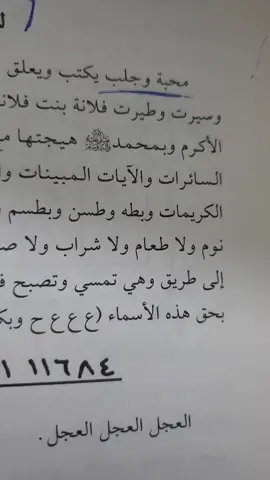 محبة وجلب يكتب ويعلق
وسيرت وطيرت فلانة بنت فلانة
الأكرم وبمحمدﷺ هيجتها
السائرات والآيات المبينات
الكريمات وبطه وطسن وبطسم
نوم ولا طعام ولا شراب ولا
إلى طريق وهي تمسي وتصبح
بحق هذه الأسماء (ع ع ع ح
١١٦٨٤
العجل العجل العجل.